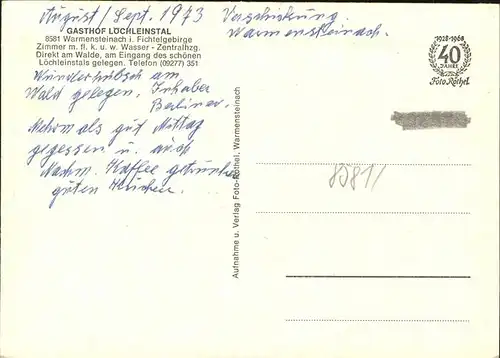 August/Sept. 1973
Verschickung
Warmensteinach.
GASTHOF LÖCHLEINSTAL
8581 Warmensteinach i. Fichtelgebirge
Zimmer m. fl. k. u. w. Wasser - Zentralhzg.
Direkt am Walde, am Eingang des schönen
Löchleinstals gelegen. Telefon (09277) 351
1928-1968
40
JAHRE
Foto Röthel
Wunderhübsch am
Wald gelegen. Inhaber
Berliner.
Mehrm als gut Mittag
gegessen u. auch
Nachm. Kaffee getrunken
guten Kuchen.
Aufnahme u. Verlag Foto-Röthel, Warmensteinach
8581/